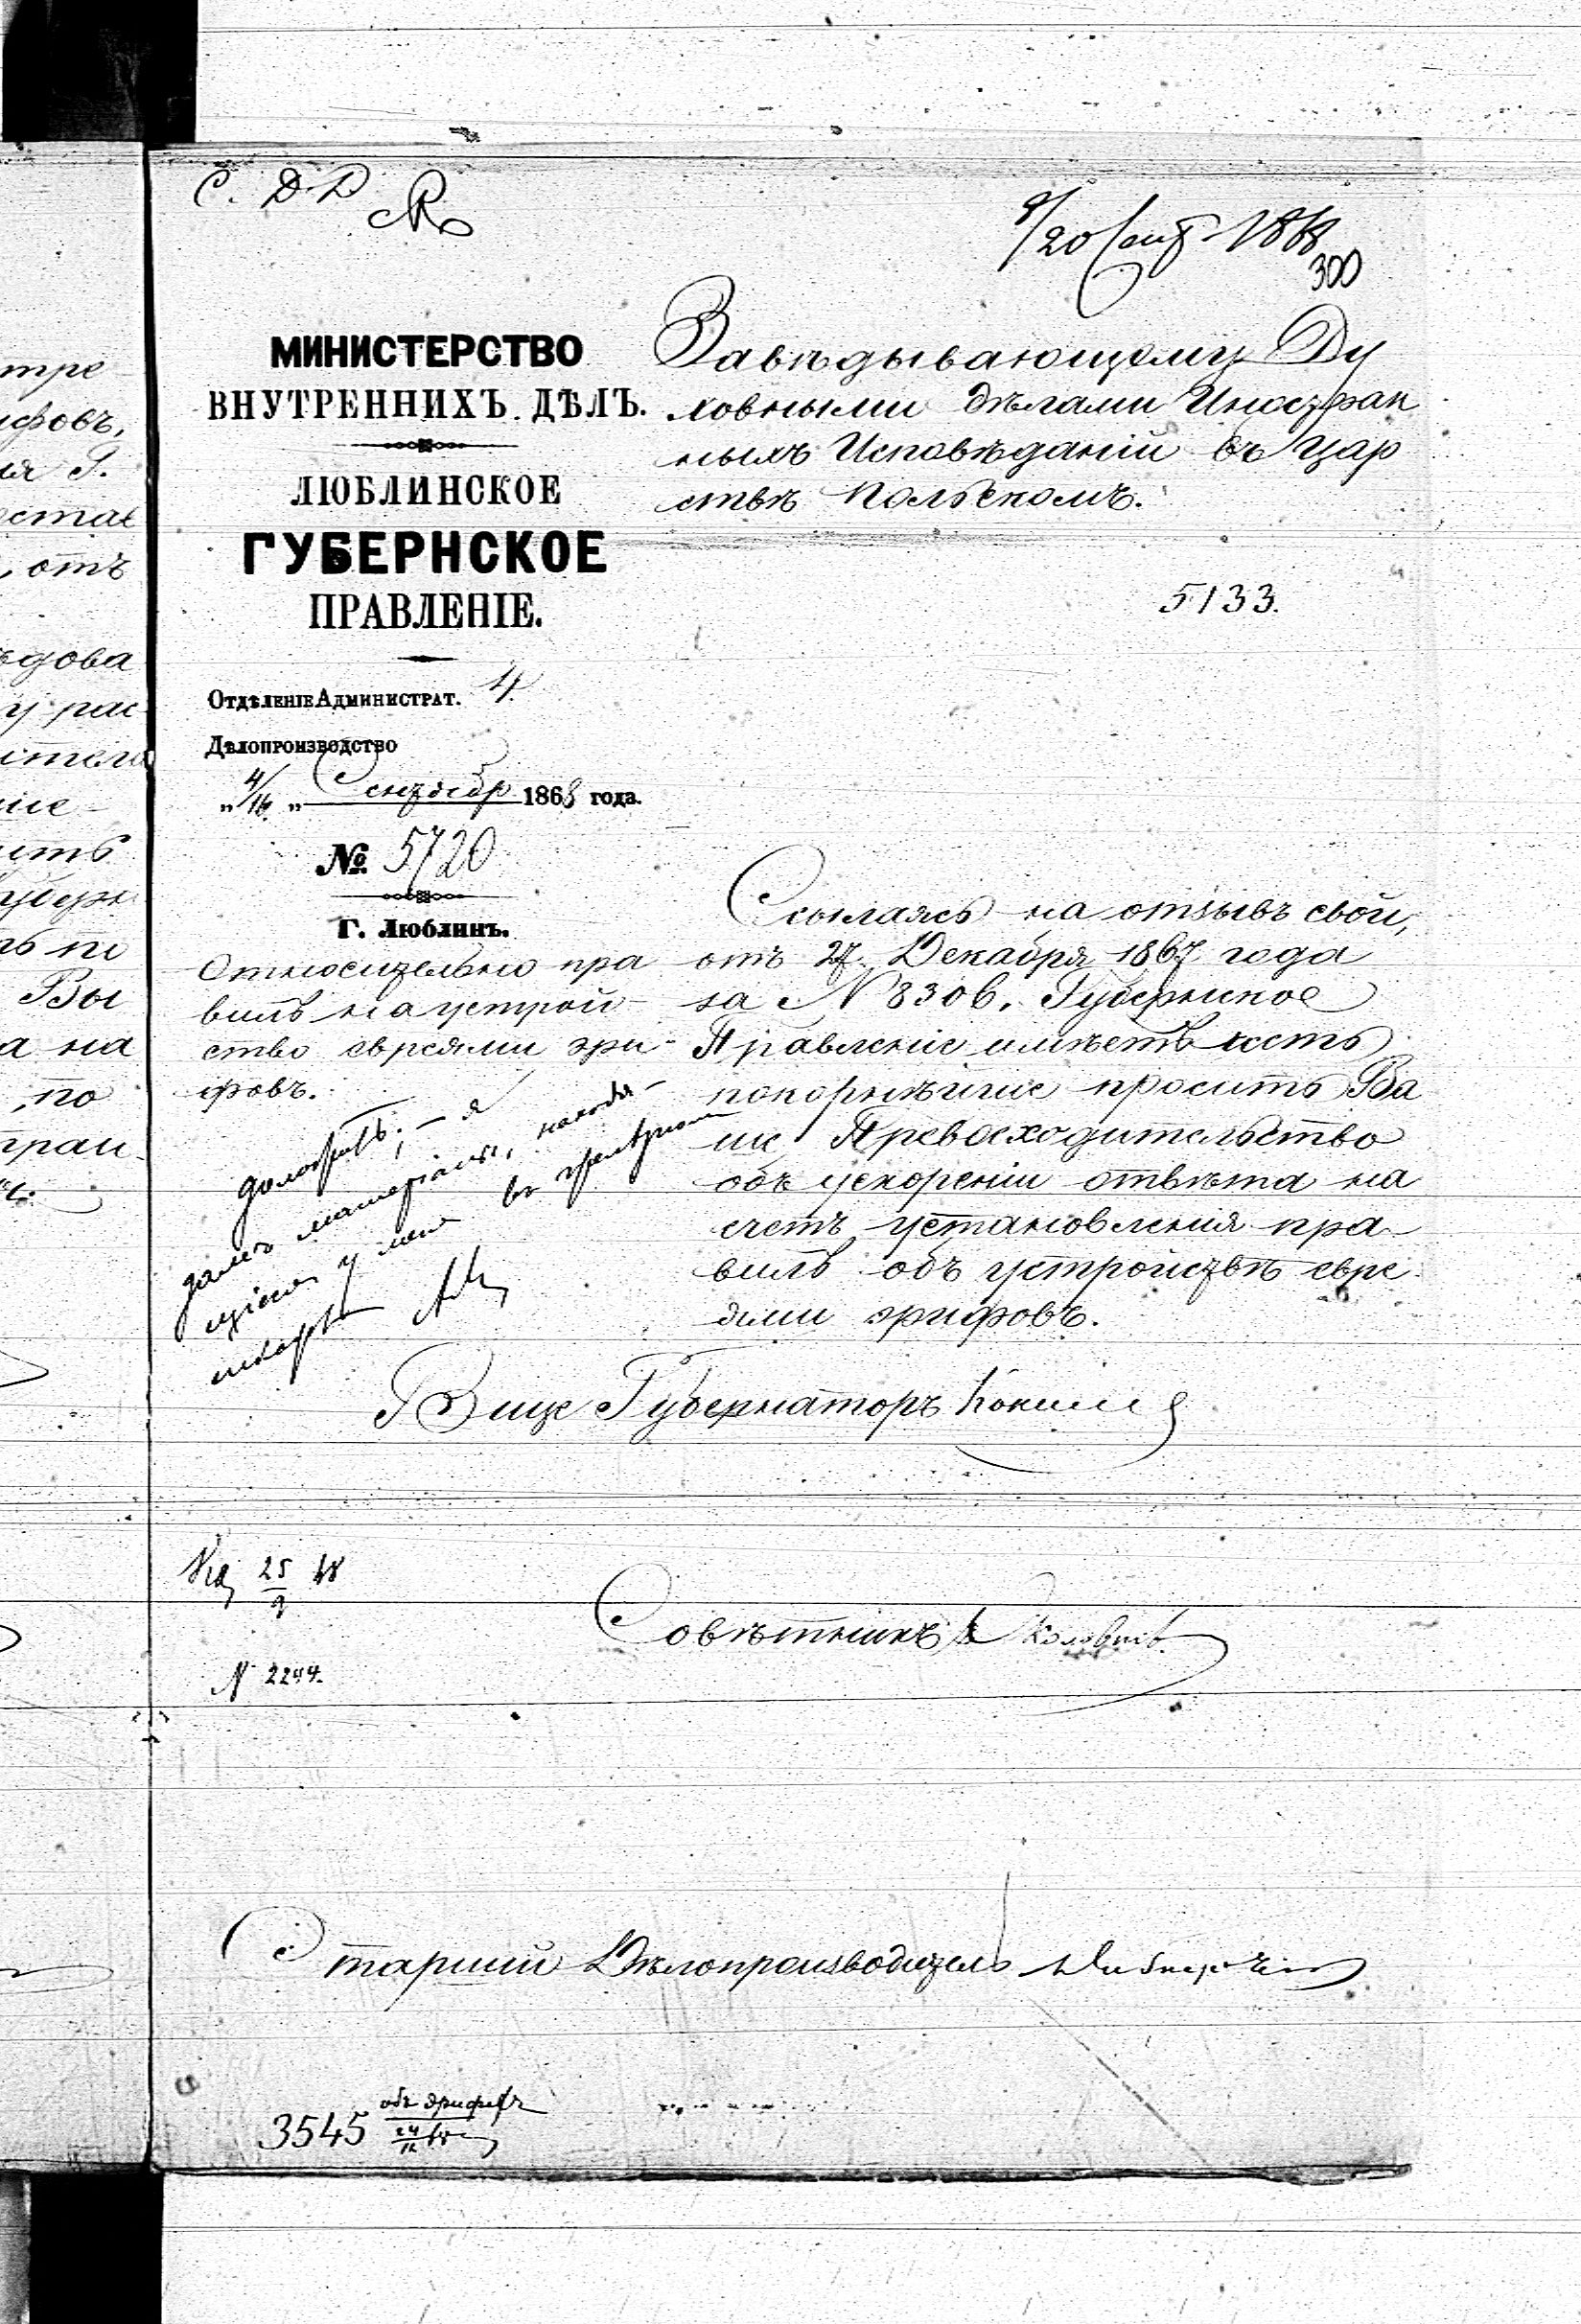 С. Д. Д.
8/20 Сент. 1868
300
МИНИСТЕРСТВО
ВНУТРЕННИХЪ ДѢЛЪ.
ЛЮБЛИНСКОЕ
ГУБЕРНСКОЕ
ПРАВЛЕНІЕ.
Отдѣленіе Администрат. 4.
Дѣлопроизводство
„4/16„ Сентябр 1868 года.
№ 5720
Г. Люблинъ.
Относительно пра
вилъ на устрой-
ство евреями эри-
фовъ.
Завѣдывающему Ду
ховными дѣлами Иностран
ныхъ Исповѣданій въ Цар
ствѣ Польскомъ.
5133.
Ссылаясь на отзывъ свой,
отъ 27. Декабря 1867 года
за N 8306. Губернское
Правленіе имѣетъ честь
покорнѣйше просить Ва
ше Превосходительство
объ ускореніи отвѣта на
счетъ установленія пра-
вилъ объ устройствѣ евре-
ями эрифовъ.
доложить; - я
далъ матеріалы, находя-
щіеся у меня въ
шкафѣ
Вице Губернаторъ
25/9 68
N 2244.
Совѣтникъ
Старшій Дѣлопроизводитель
3545 объ эрифахъ